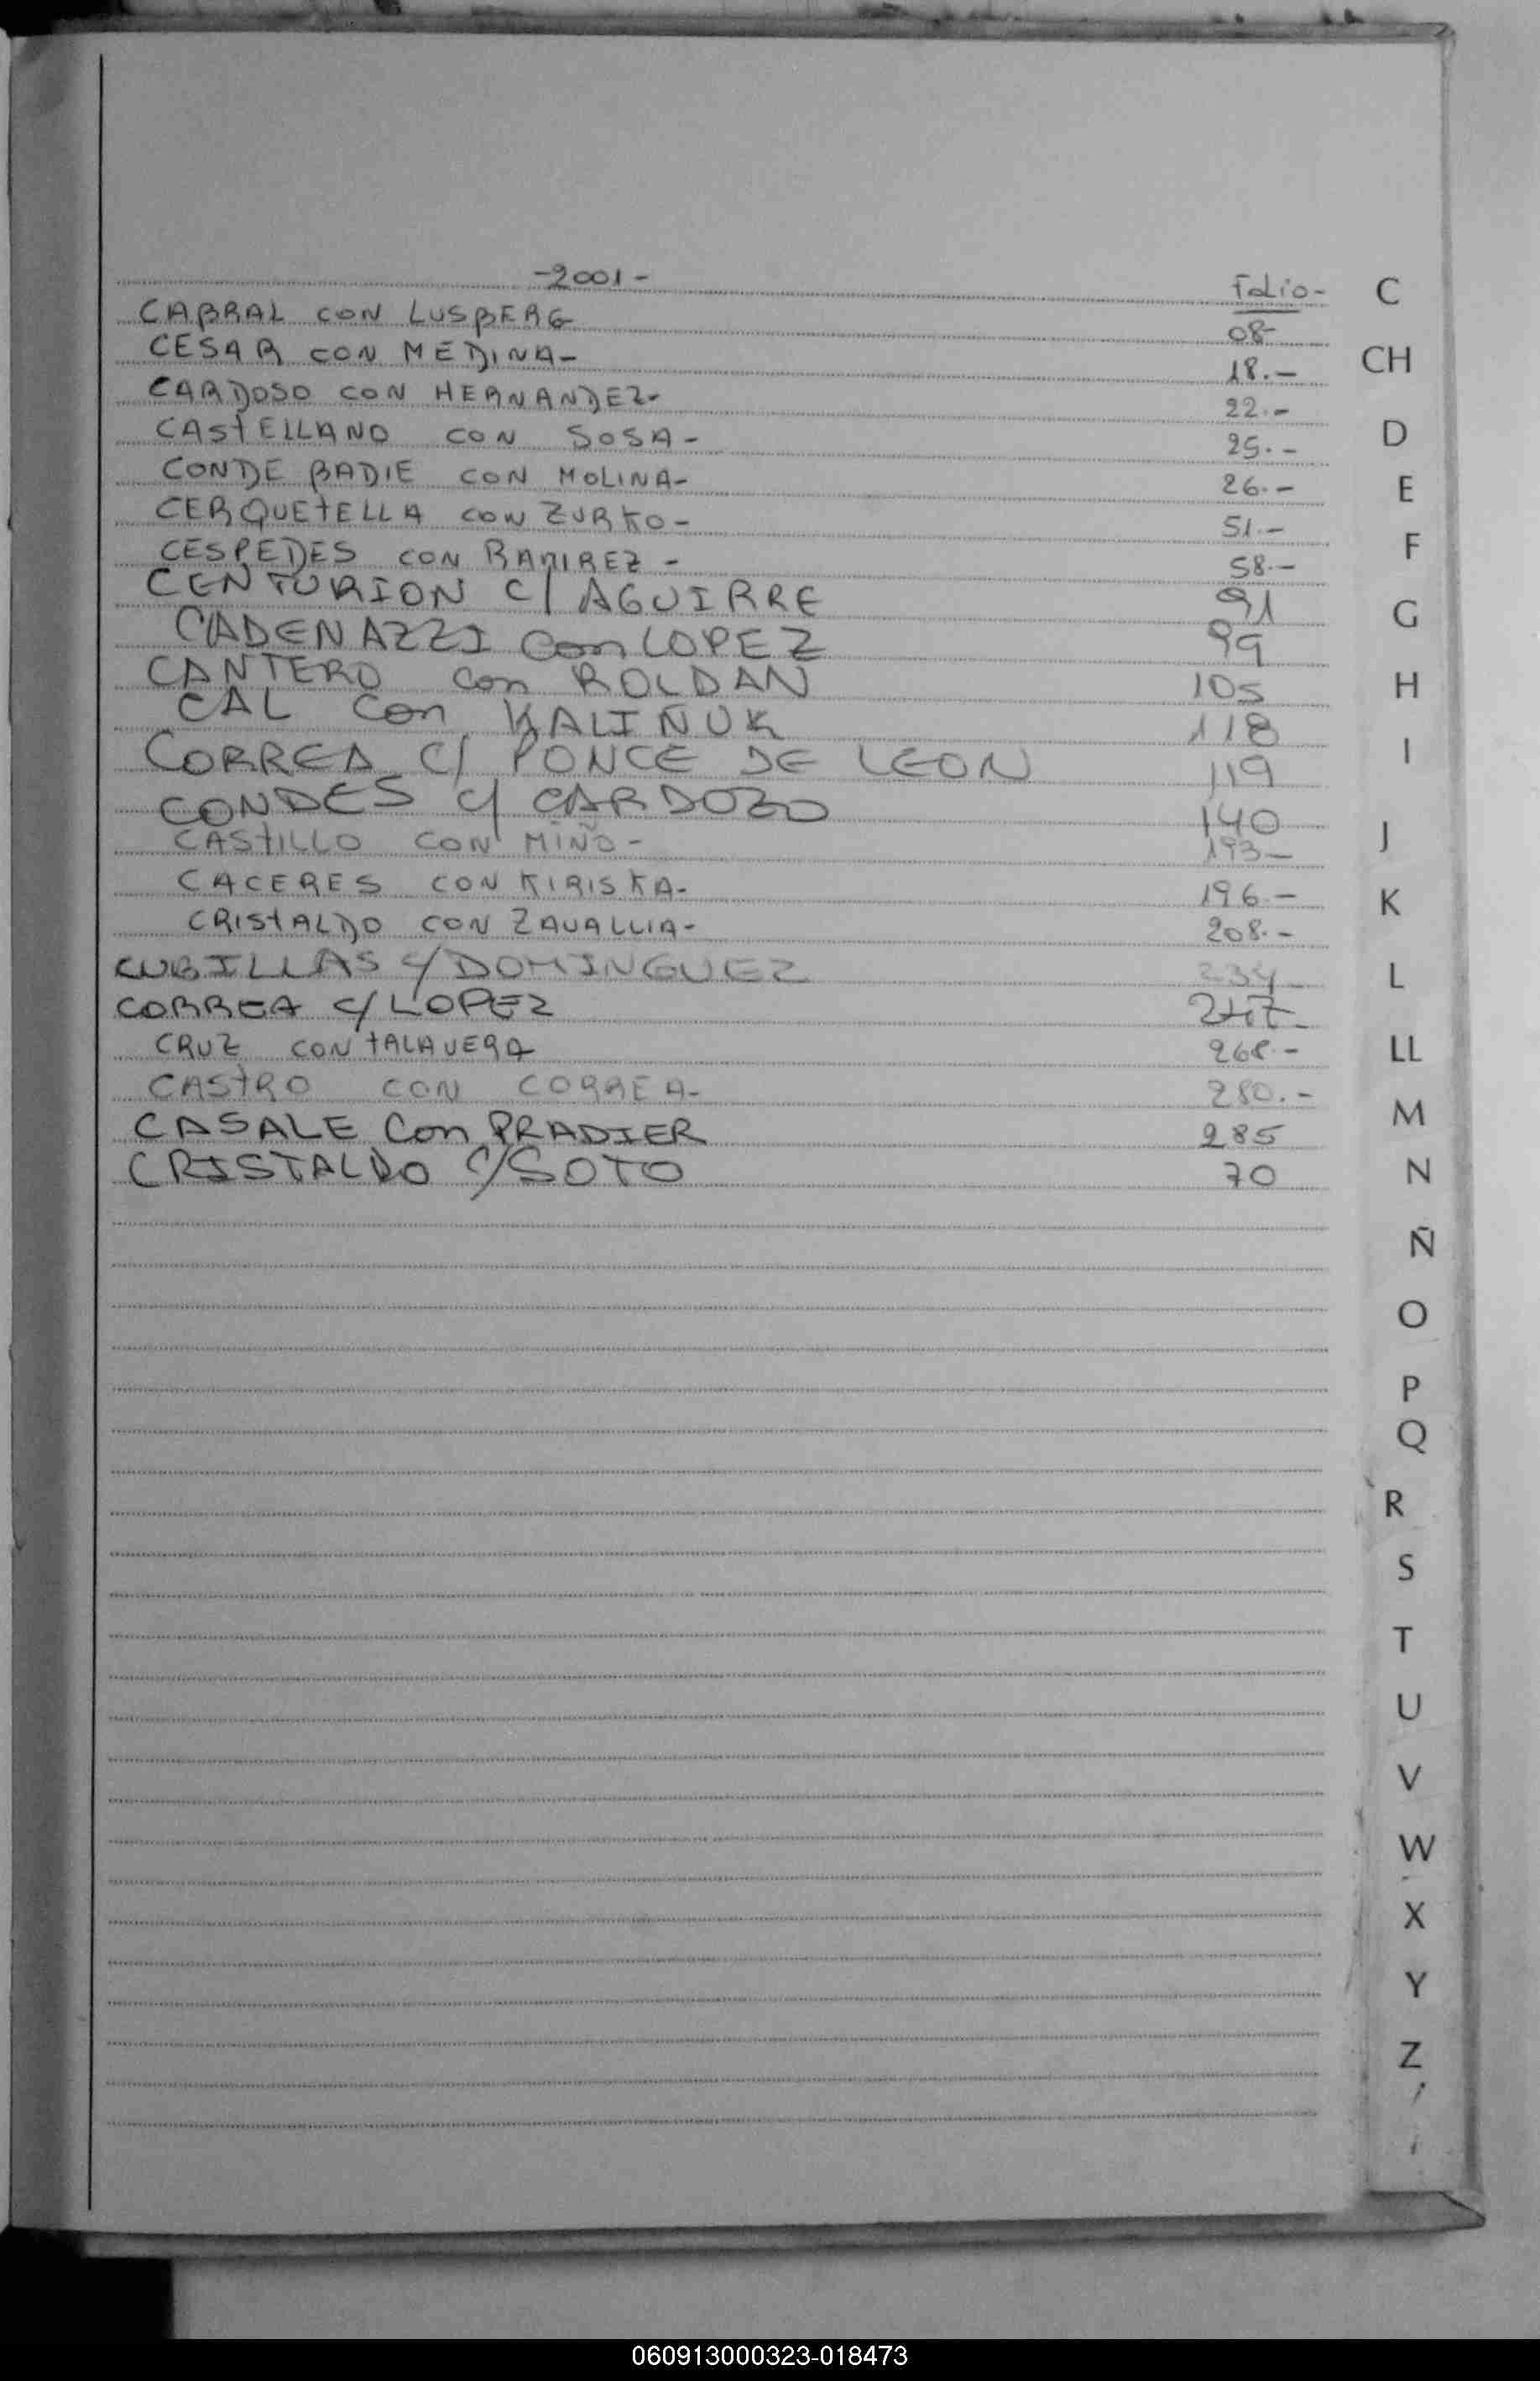 -2001-
Folio- C
CABRAL CON LUSBERG 08-
CESAR CON MEDINA- 18.- CH
CARDOSO CON HERNANDEZ- 22.-
CASTELLANO CON SOSA- 25.- D
CONDE BADIE CON MOLINA- 26.- E
CERQUETELLA CON ZURKO- 51.-
CESPEDES CON RAMIREZ- 58.- F
CENTURION C/ AGUIRRE 91 G
CADENAZZI con LOPEZ 99
CANTERO con ROLDAN 105 H
CAL con KALIÑUK 118
CORREA C/ PONCE DE LEON 119 I
CONDES C/ CARDOZO 140
CASTILLO CON MIÑO- 193- J
CACERES CON KIRISKA- 196.- K
CRISTALDO CON ZAVALLIA- 208.-
CUBILLAS C/ DOMINGUEZ 234 L
CORREA C/ LOPEZ 247-
CRUZ CON TALAVERA 268.- LL
CASTRO CON CORREA- 280.-
CASALE Con PRADIER 285 M
CRISTALDO C/ SOTO 70 N
Ñ
O
P
Q
R
S
T
U
V
W
X
Y
Z
060913000323-018473